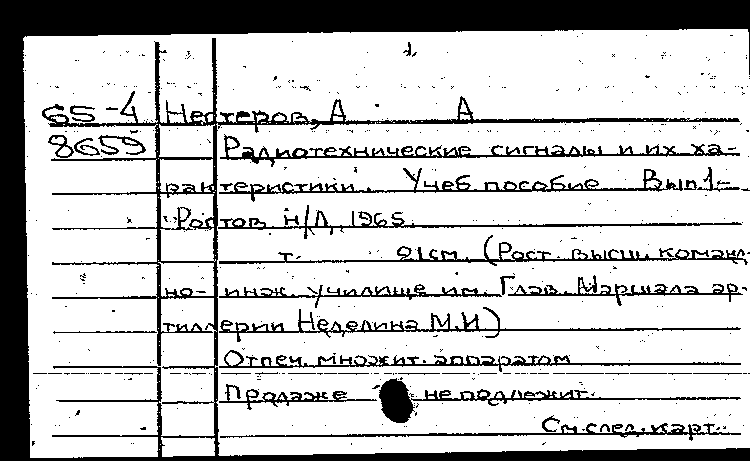 1.
65-4 Нестеров, А А
8659 Радиотехнические сигналы и их ха-
рактеристики. Учеб пособие Вып.1-
Ростов н/Д, 1965.
т. 21см. (Рост. высш. команд-
но-инж. училище им. Глав. Маршала ар-
тиллерии Неделина М.И)
Отпеч. множит. аппаратом
Продаже не подлежит.
См. след. карт.